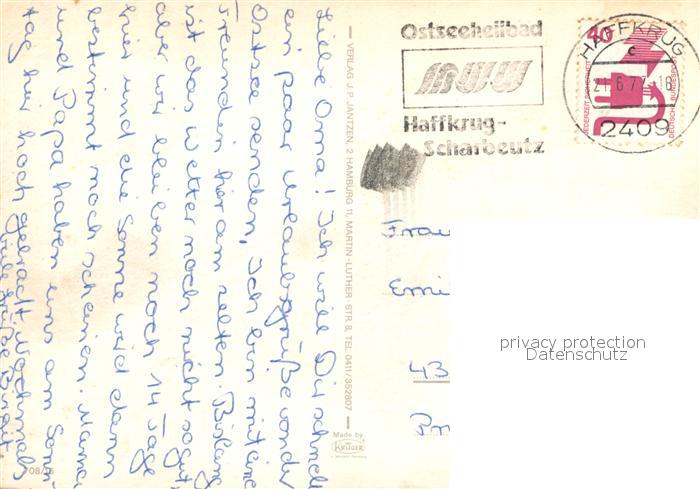 Liebe Oma! Ich will Dir schnell
ein paar Urlaubsgrüße von der
Ostsee senden. Ich bin mit eine
Freundin hier am zelten. Bislang
ist das Wetter noch nicht so gut,
aber wir bleiben noch 14 Tage
hier und die Sonne wird dann
bestimmt noch scheinen. Mama
und Papa haben uns am Sonn-
tag hier hoch gebracht. Nochmals
viele Grüße Birgit
708/16
VERLAG J. P. JANTZEN, 2 HAMBURG 11, MARTIN-LUTHER STR. 8, TEL. 0411/352807
Made by
KRÜGER
Ostseeheilbad
Haffkrug-
Scharbeutz
HAFFKRUG
c
21.6.77-18
2409
40
JEDERZEIT SICHERHEIT
DEUTSCHE BUNDESPOST
Frau
Emi
43
privacy protection
Datenschutz